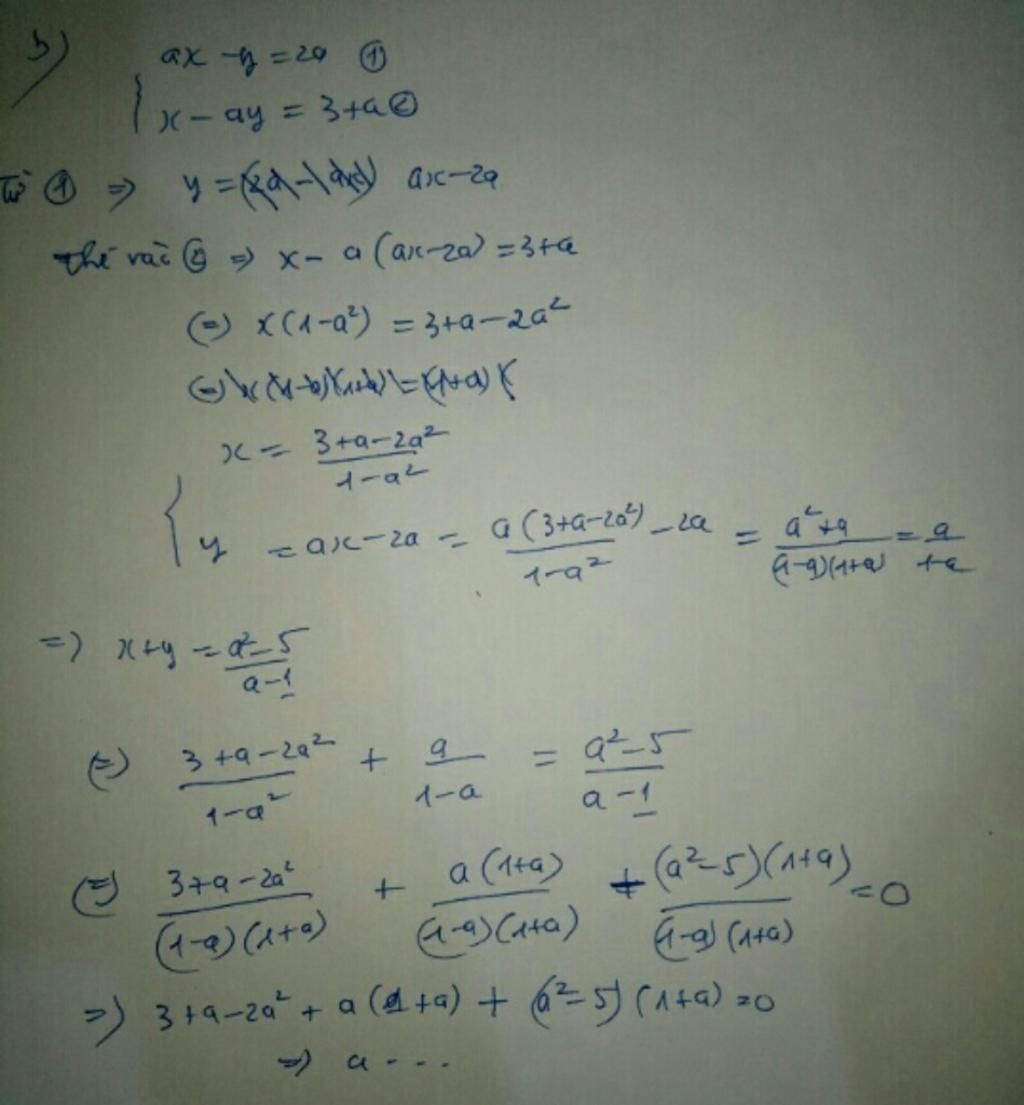 b)
ax - y = 2a ①
{ x - ay = 3 + a ②
Từ ① ⇒ y = ax - 2a
thế vào ② ⇒ x - a(ax - 2a) = 3 + a
(=) x(1 - a²) = 3 + a - 2a²
x = (3 + a - 2a²)/(1 - a²)
{ y = ax - 2a = (a(3 + a - 2a²))/(1 - a²) - 2a = (a² + a)/((1 - a)(1 + a)) = a/(1 - a)
=) x + y = (a² - 5)/(a - 1)
(=) (3 + a - 2a²)/(1 - a²) + a/(1 - a) = (a² - 5)/(a - 1)
(=) (3 + a - 2a²)/((1 - a)(1 + a)) + (a(1 + a))/((1 - a)(1 + a)) + ((a² - 5)(1 + a))/((1 - a)(1 + a)) = 0
=) 3 + a - 2a² + a(1 + a) + (a² - 5)(1 + a) = 0
=) a ...